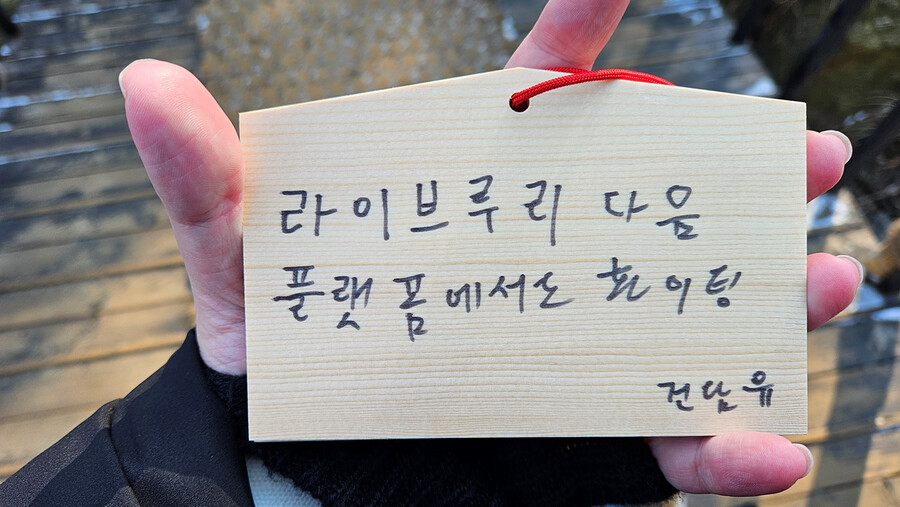 라이브루리 다음
플랫폼에서도 화이팅
건담윾